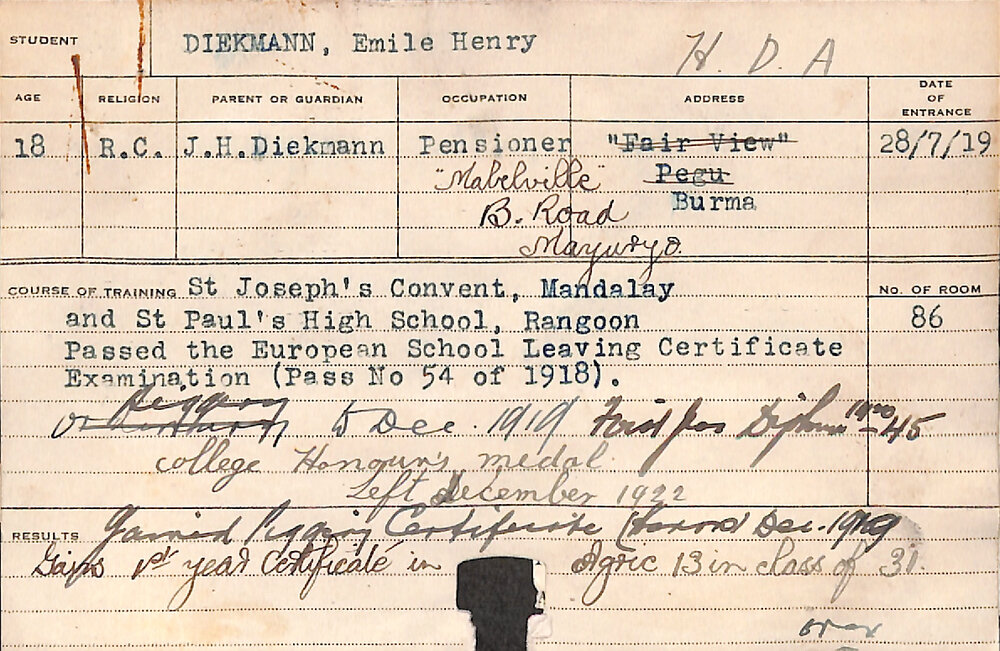 STUDENT DIEKMANN, Emile Henry H. D. A
AGE RELIGION PARENT OR GUARDIAN OCCUPATION ADDRESS DATE OF ENTRANCE
18 R.C. J.H.Diekmann Pensioner "Fair View" 28/7/19
"Mabelville" Pegu
B. Road Burma
Mayurgo.
COURSE OF TRAINING St Joseph's Convent, Mandalay No. OF ROOM
and St Paul's High School, Rangoon 86
Passed the European School Leaving Certificate
Examination (Pass No 54 of 1918).
to Dec. 1919 Paid for Diploma 1920 45
College Honours medal.
Left december 1922
RESULTS Gained Piggery Certificate (Honors) Dec. 1919
Gains 1st year Certificate in Agric 13 in class of 31.
over